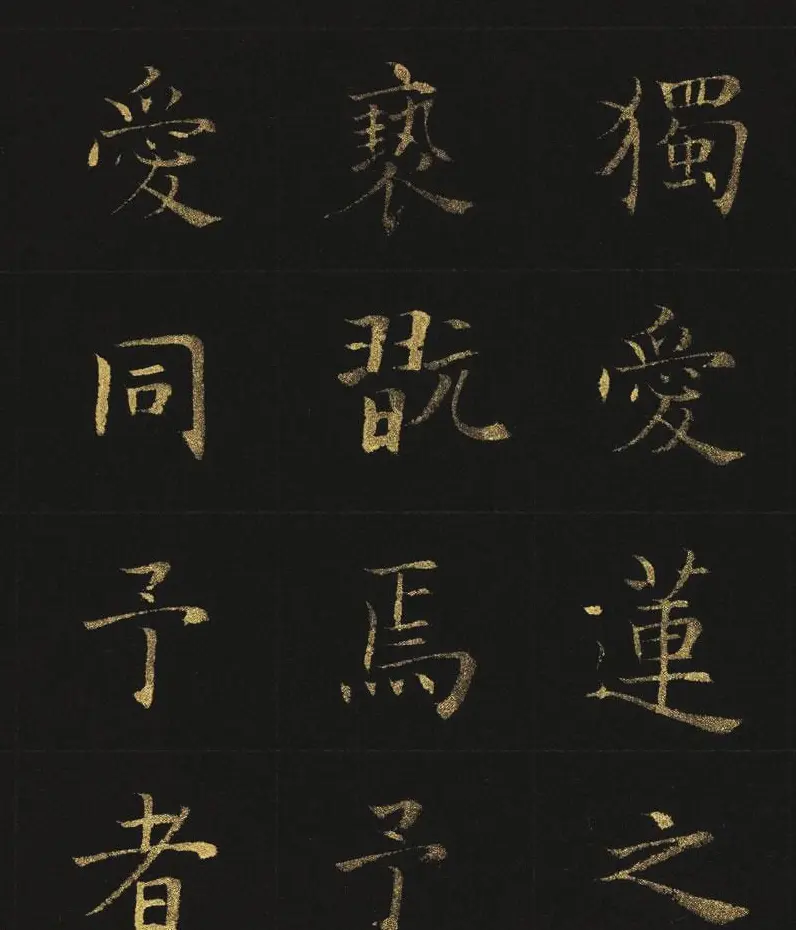 獨愛蓮之
褻翫焉予
愛同予者